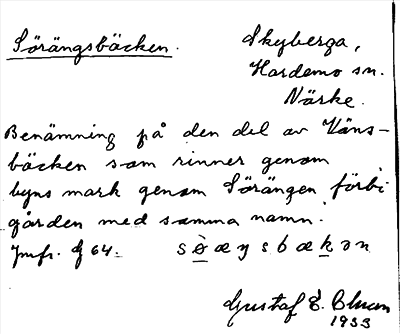 Sörängsbäcken.
Skyberga,
Hardemo sn.
Närke.
Benämning på den del av Väns-
bäcken som rinner genom
byns mark genom Sörängen förbi
gården med samma namn.
Jmfr. 64.
Gustaf E.
1933